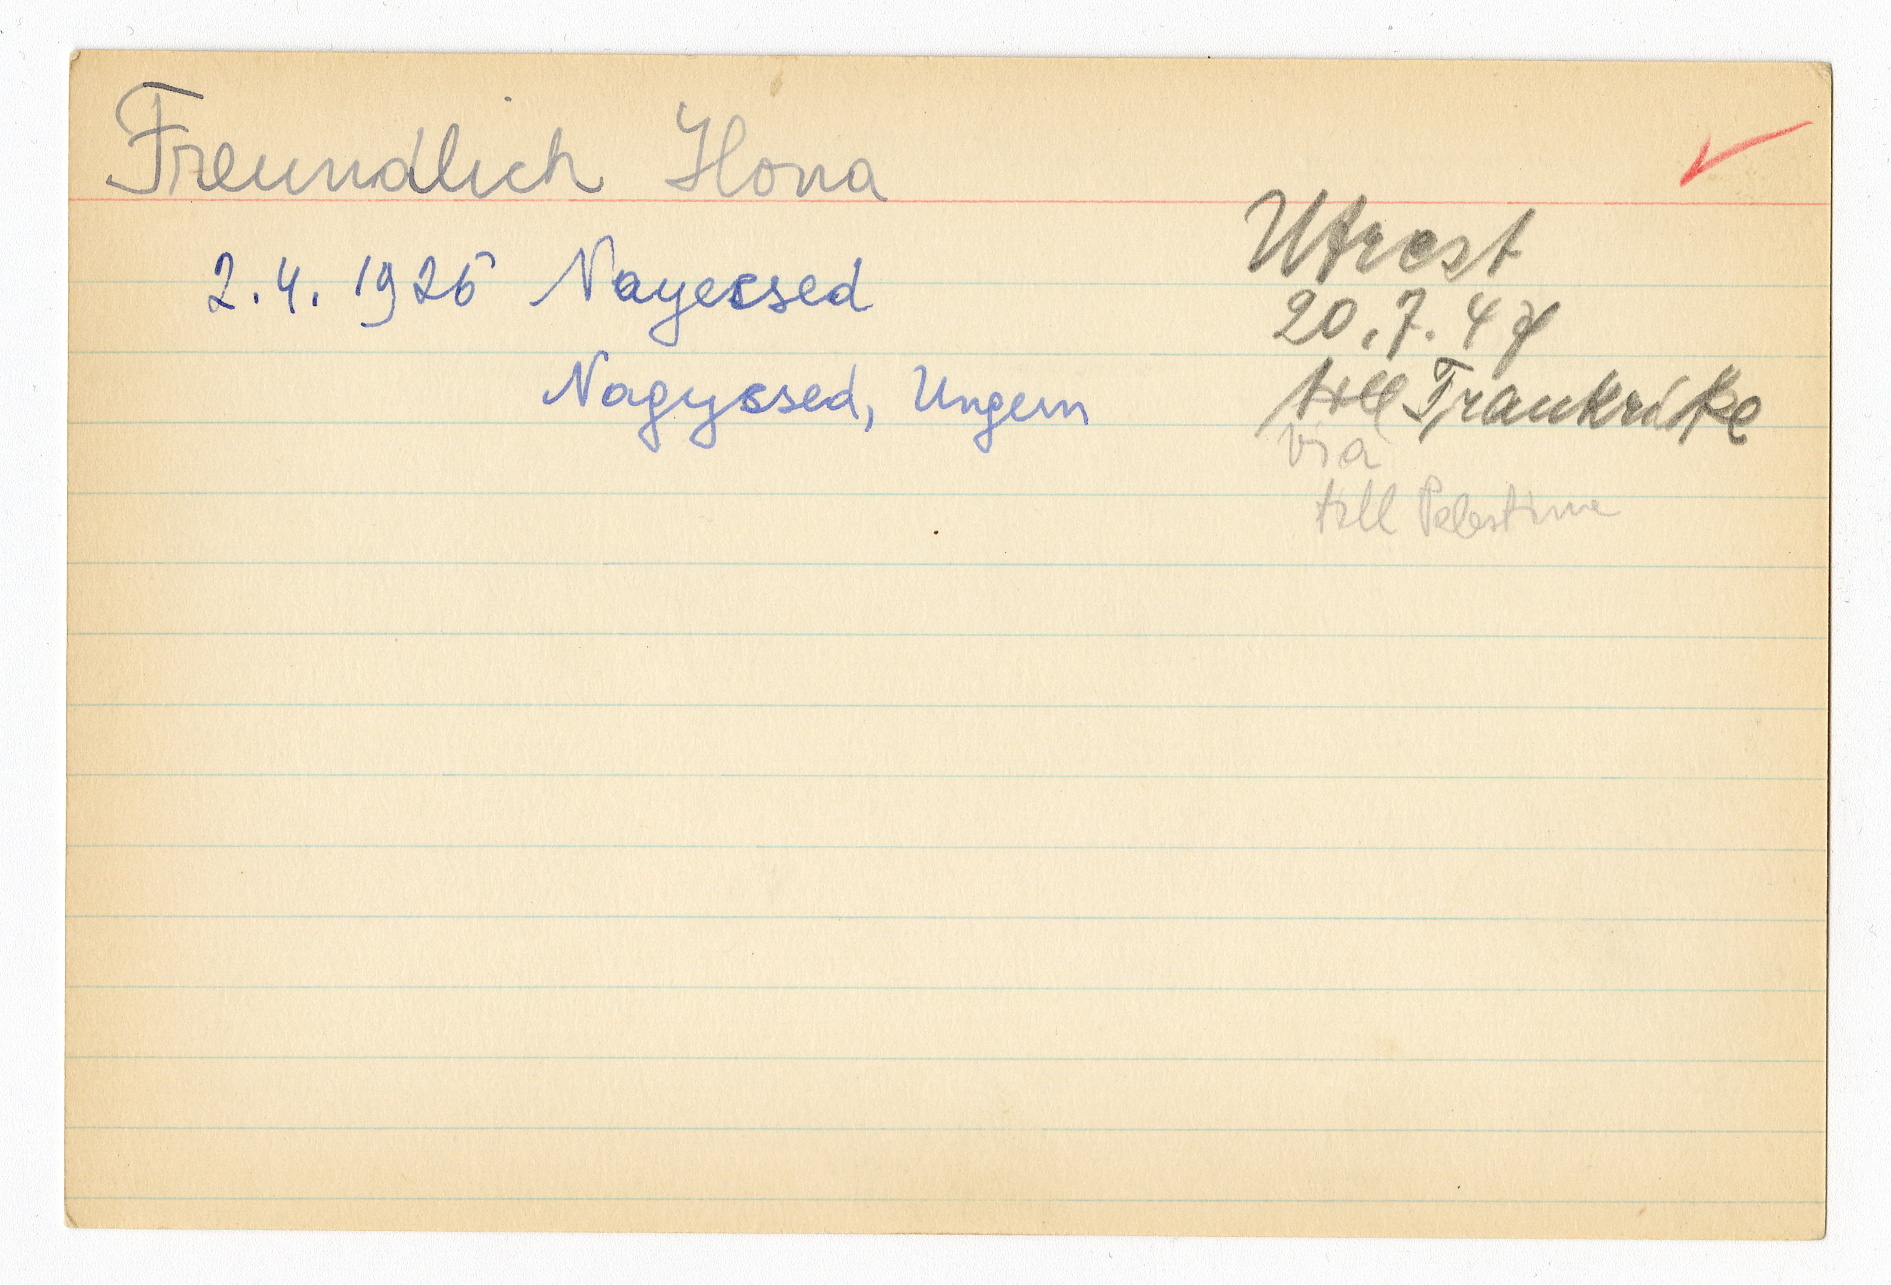 Freundlich Ilona
2.4. 1925 Nayecsed
Nagycsed, Ungern
Utrest
20.7.47
till Frankrike
via
till Palestina